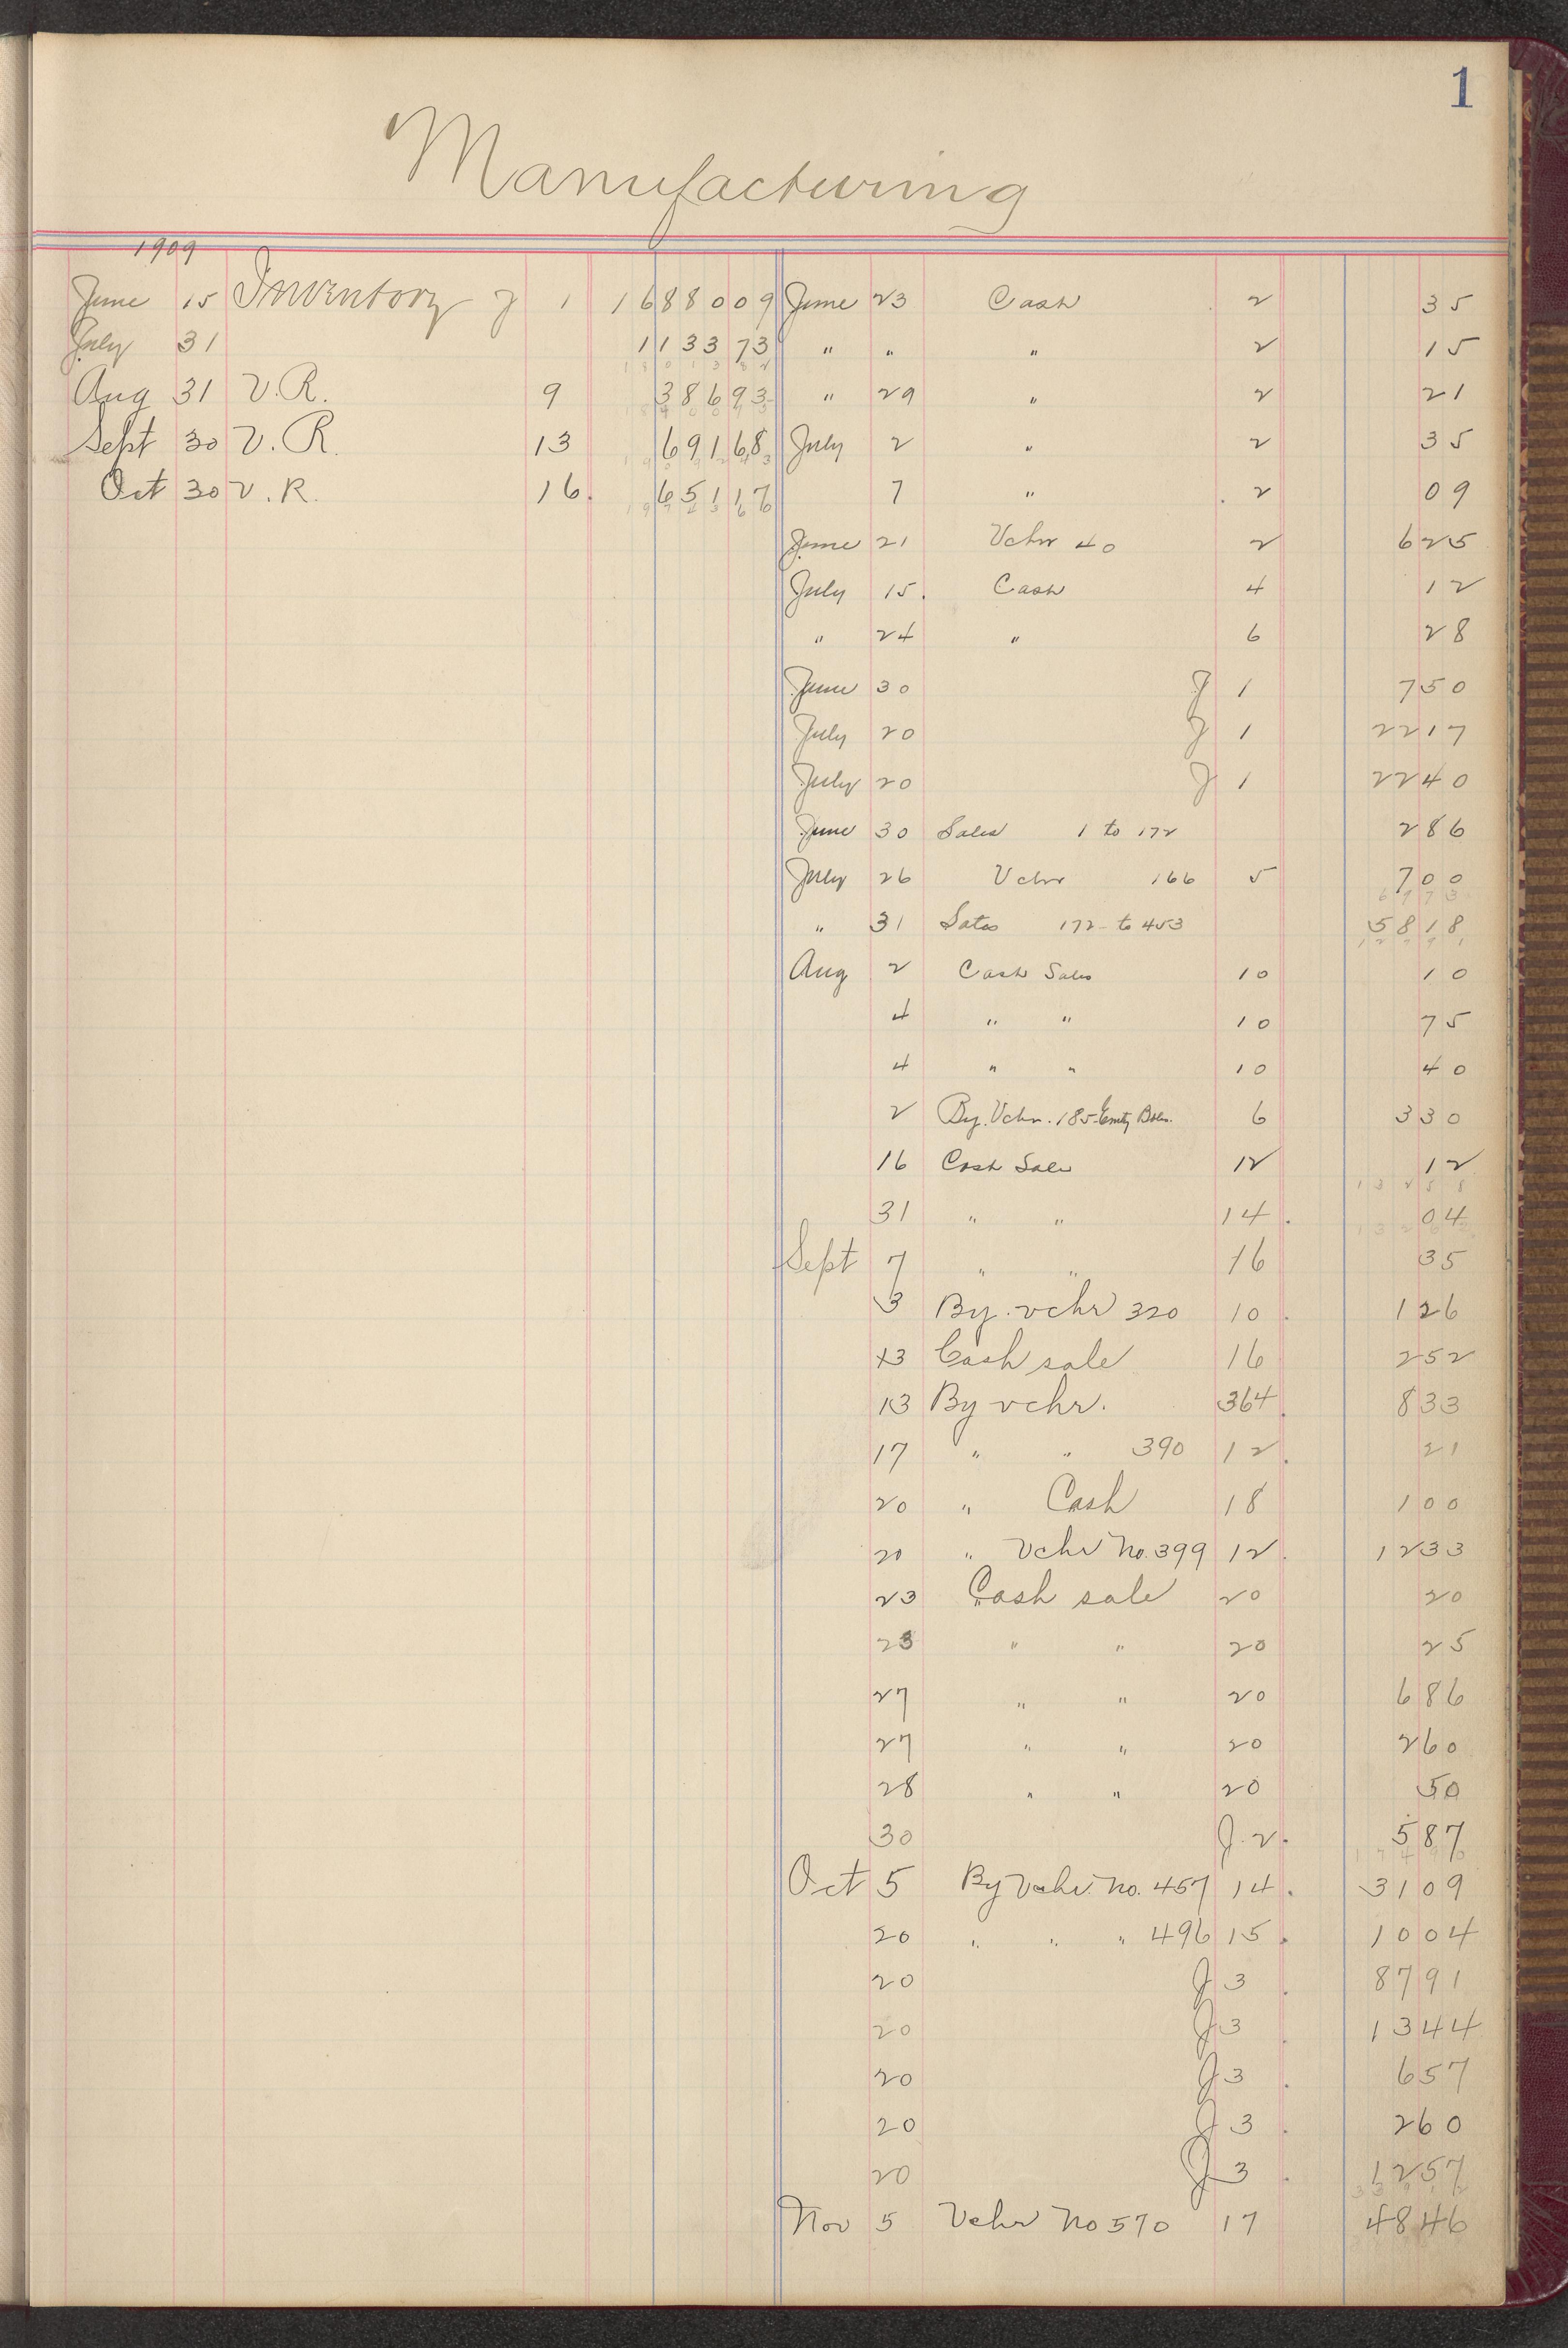 1
Manufacturing
1909
June 15 Inventory J 1 1688009 June 23 Cash 2 35
July 31 113373 " " " 2 15
Aug 31 V.R. 9 38693 " 29 " 2 21
Sept 30 V.R. 13 69168 July 2 " 2 35
Oct 30 V.R. 16. 65117 7 " 2 09
June 21 Vchr 40 2 625
July 15. Cash 4 12
" 24 " 6 28
June 30 J 1 750
July 20 J 1 2217
July 20 J 1 2240
June 30 Sales 1 to 172 286
July 26 Vchr 166 5 700
6973
" 31 Sales 172 to 453 5818
Aug 2 Cash Sales 10 10
4 " " 10 75
4 " " 10 40
2 By. Vchr. 185 Emty Bbls. 6 330
16 Cash Sale 12 12
13258
31 " " 14. 04
Sept 7 " " 16 35
3 By. vchr 320 10. 126
13 Cash sale 16 252
13 By vchr. 364. 833
17 " " 390 12. 21
20 " Cash 18 100
20 " Vchr No. 399 12. 1233
23 Cash sale 20 20
23 " " 20 25
27 " " 20 686
27 " " 20 260
28 " " 20 50
30 J. 2. 587
Oct 5 By Vchr. No. 457 14. 3109
20 " " " 496 15. 1004
20 J 3 . 8791
20 J 3 . 1344
20 J 3 . 657
20 J 3 . 260
20 J 3 . 1257
Nov 5 Vchr No 570 17 4846